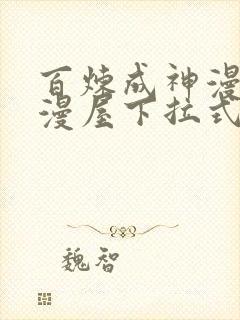 百炼成神漫
漫屋下拉式
魏智